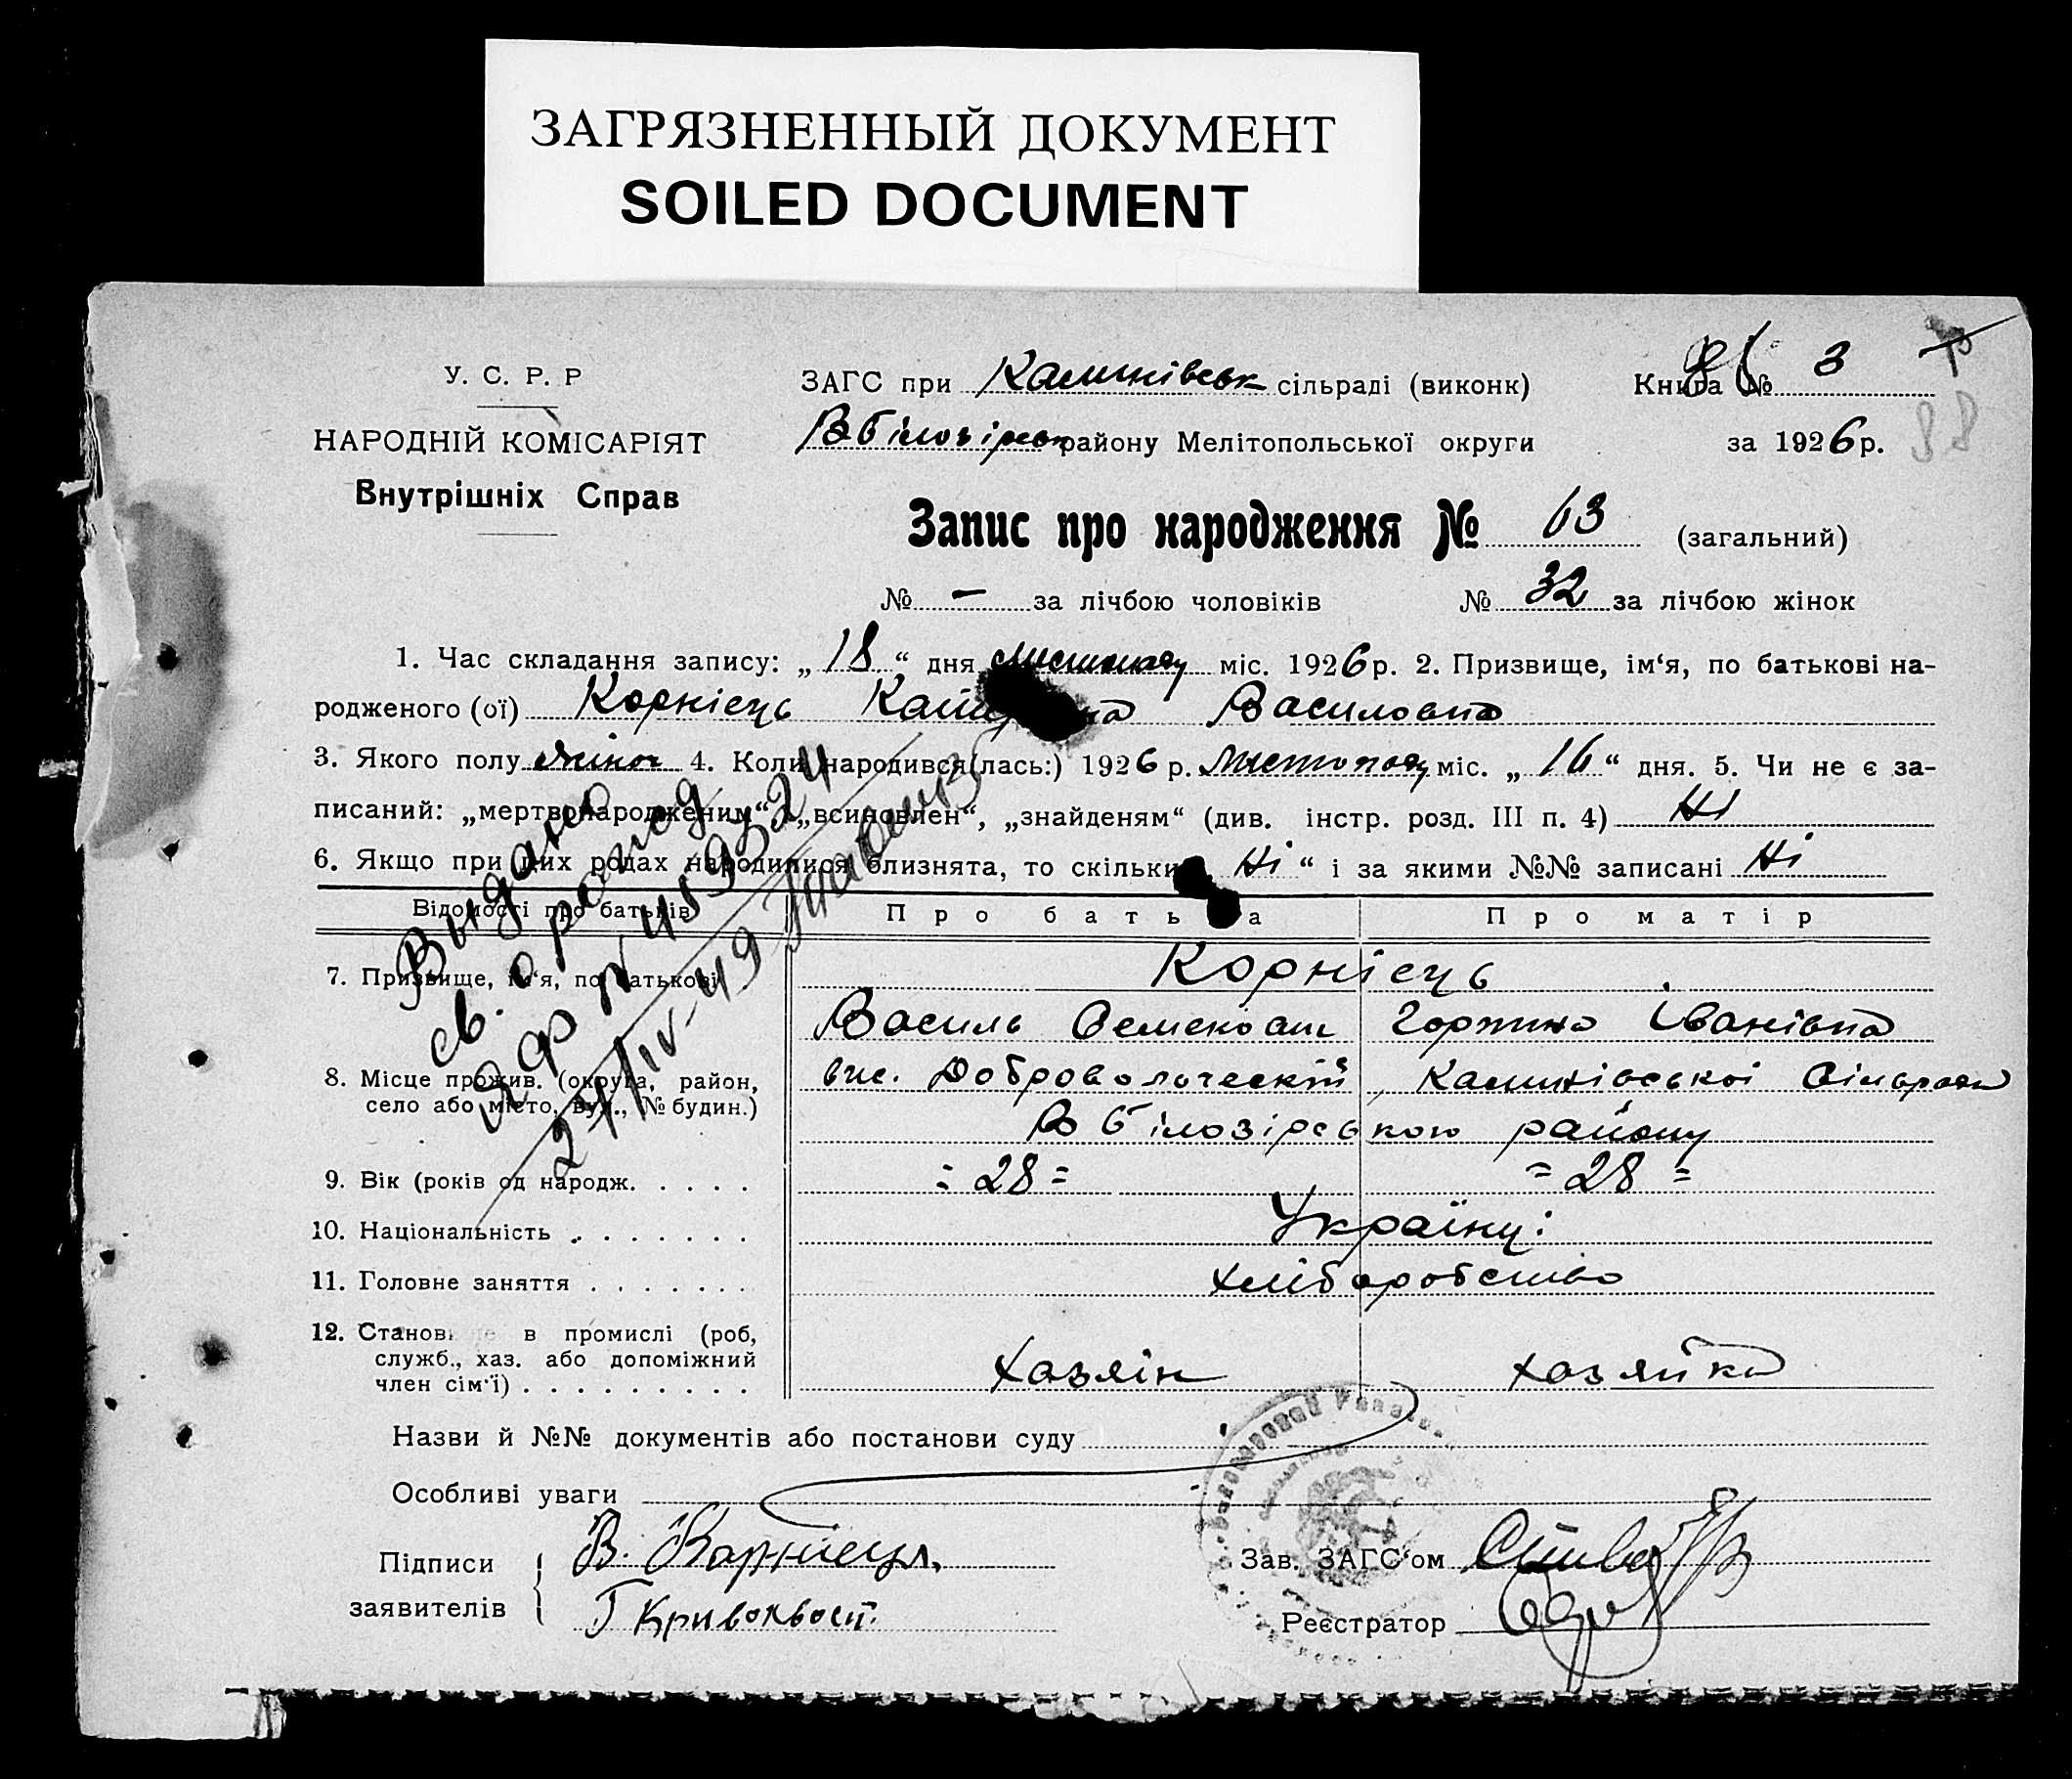 ЗАГРЯЗНЕННЫЙ ДОКУМЕНТ
SOILED DOCUMENT
У. С. Р. Р
НАРОДНІЙ КОМІСАРІЯТ
Внутрішніх Справ
ЗАГС при сільраді (виконк)
Книга № 3
Вбілозірськ району Мелітопольської округи
за 1926 р.
88
Запис про народження № 63 (загальний)
№ — за лічбою чоловіків № 32 за лічбою жінок
1. Час складання запису: „18“ дня листопаду міс. 1926 р. 2. Призвище, ім‘я, по батькові на-
родженого (ої) Корнієць Василовна
3. Якого полу жіноч 4. Коли народився(лась:) 1926 р. листопаду міс. „16“ дня. 5. Чи не є за-
писаний: „мертвонародженим“, „всиновлен“, „знайденям“ (див. інстр. розд. III п. 4) Ні
6. Якщо при цих родах народилися близнята, то скільки Ні“ і за якими №№ записані Ні
Відомості про батьків
Про батька
Про матір
7. Призвище, ім‘я, по батькові
Корнієць
Василь Семенович
Іванівна
8. Місце прожив. (округа, район,
село або місто, вул., № будин.)
вис. Сільради
Вбілозірською району
9. Вік (років од народж.
= 28 =
= 28 =
10. Національність
Українці
11. Головне заняття
хліборобство
12. Станов в промислі (роб,
служб., хаз. або допоміжний
член сім‘ї)
хазяїн
хазяйка
Назви й №№ документів або постанови суду
Особливі уваги
Підписи
заявителів
В. Корниецъ.
Г Кривохвост.
Зав. ЗАГС‘ом
Реєстратор
Выдано
св. о рожд
ЯФ № 459324
24/IV-49